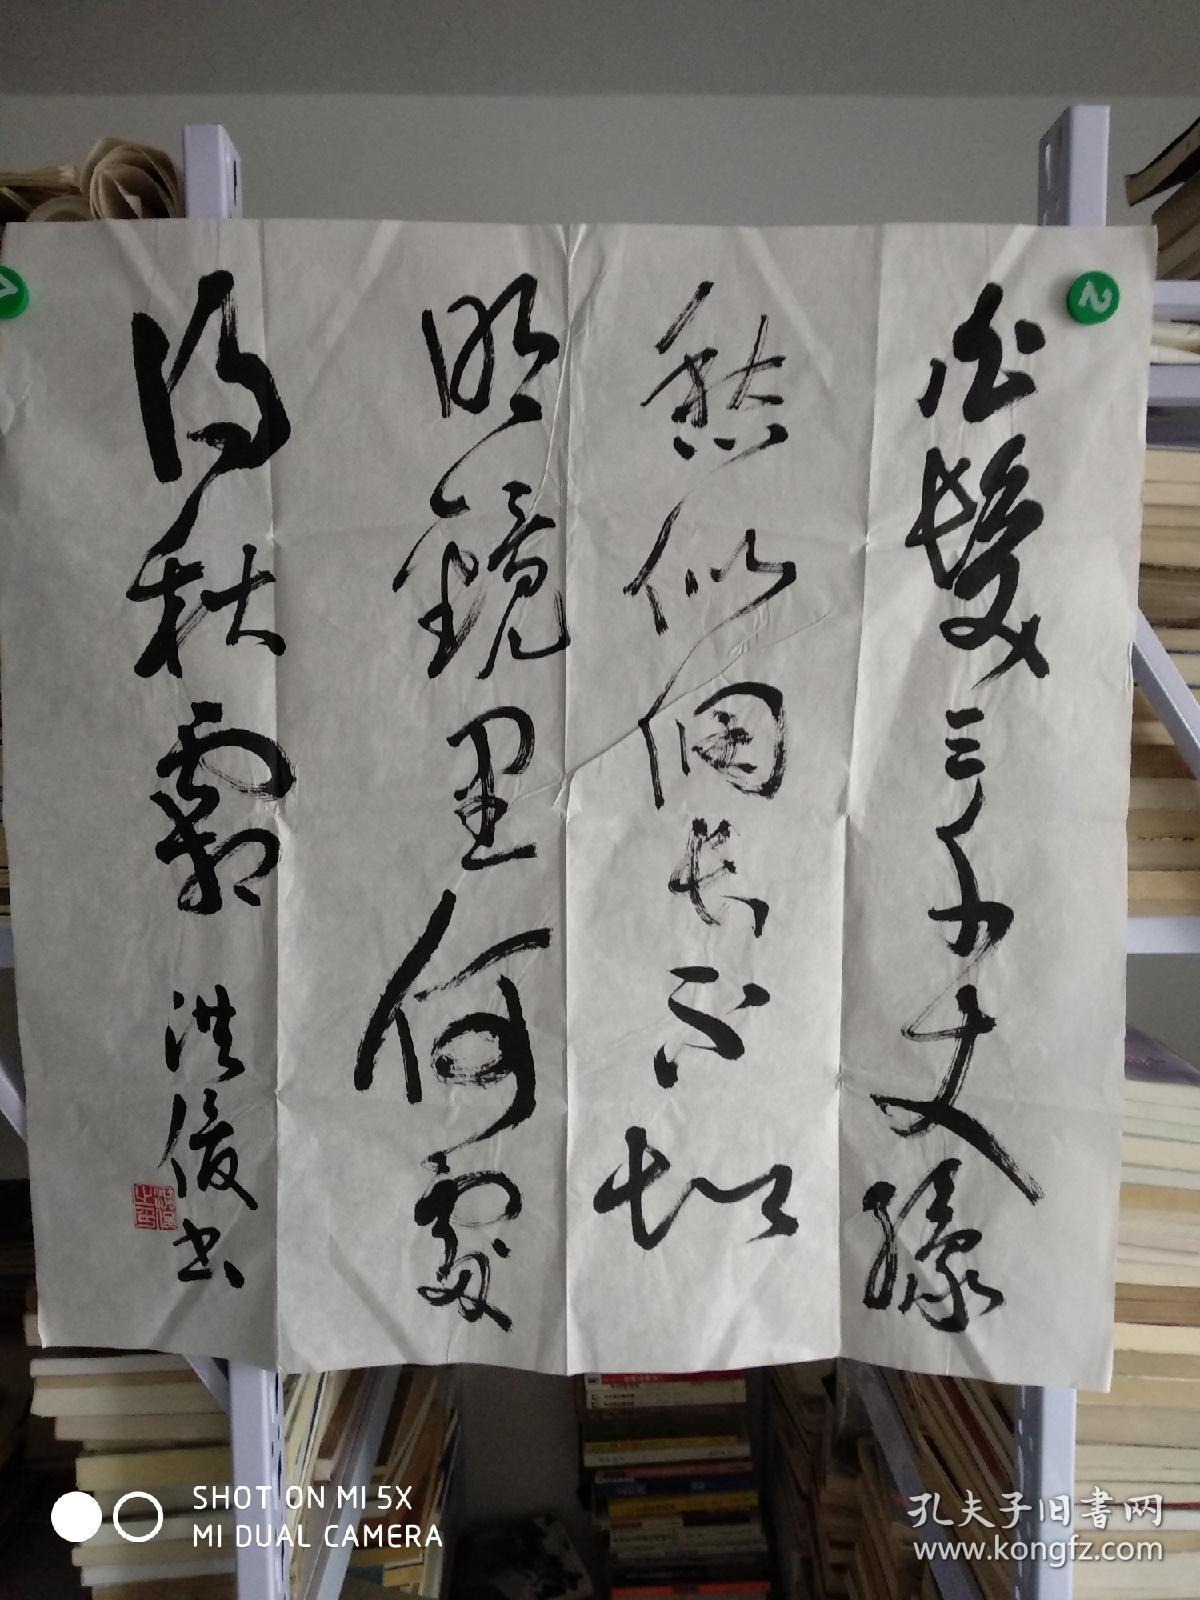 白髮三千丈緣
愁似個长不知
明鏡里何處
得秋霜 洪俊书
洪俊之印
2
SHOT ON MI 5X
MI DUAL CAMERA
孔夫子旧書网
www.kongfz.com